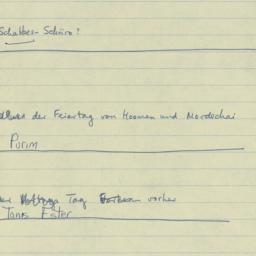 Schabbes-Schüro?
der Feiertag von Hoomen und Mordechai
Purim
Tag vorher
Tanis Ester